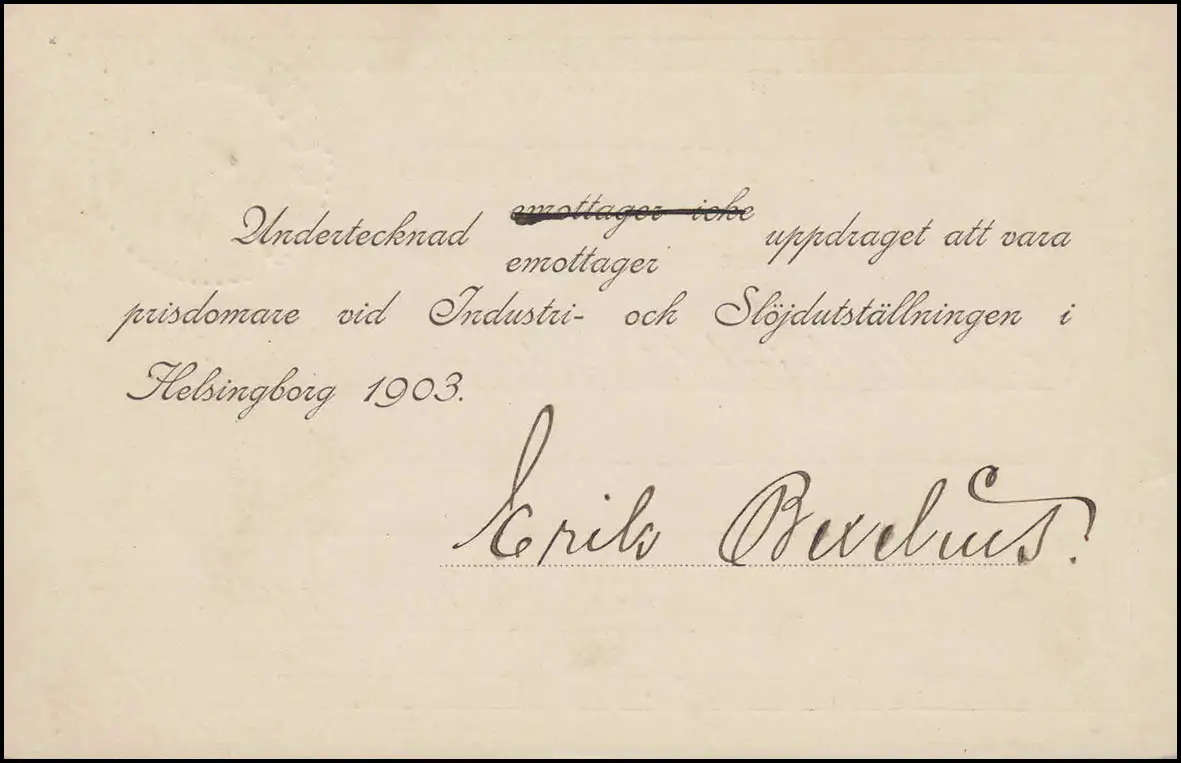 emottager icke
Undertecknad uppdraget att vara
emottager
prisdomare vid Industri- och Slöjdutställningen i
Helsingborg 1903.
Erik Bexelius.